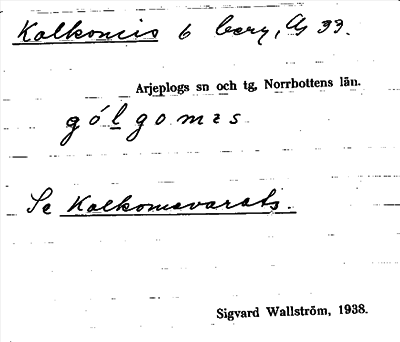 Kalkomis 6 berg, Ag 33.
Arjeplogs sn och tg, Norrbottens län.
gól̲gomzs
Se Kalkomsvarats.
Sigvard Wallström, 1938.